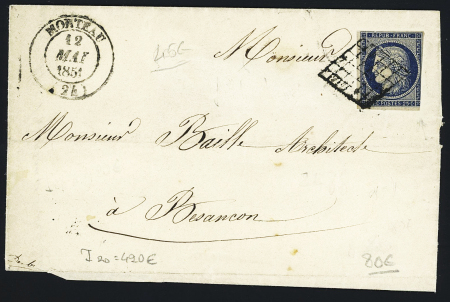 MORTEAU
12
MAI
1851
(24)
45€
REPUB. FRANC.
25 POSTES 25
Monsieur
Monsieur Baille Architecte
à Besançon
J20=420€
80€